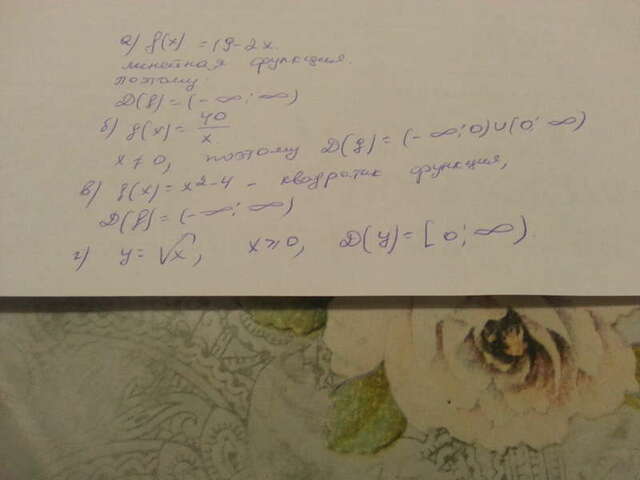 а) f(x) = 19-2x.
линейная функция.
поэтому
D(f)=(-∞;∞)
б) g(x)=40/x
x≠0, поэтому D(g)=(-∞;0)∪(0;∞)
в) f(x)=x²-4 - квадратик функция,
D(f)=(-∞;∞)
г) y=√x, x≥0, D(y)=[0;∞).